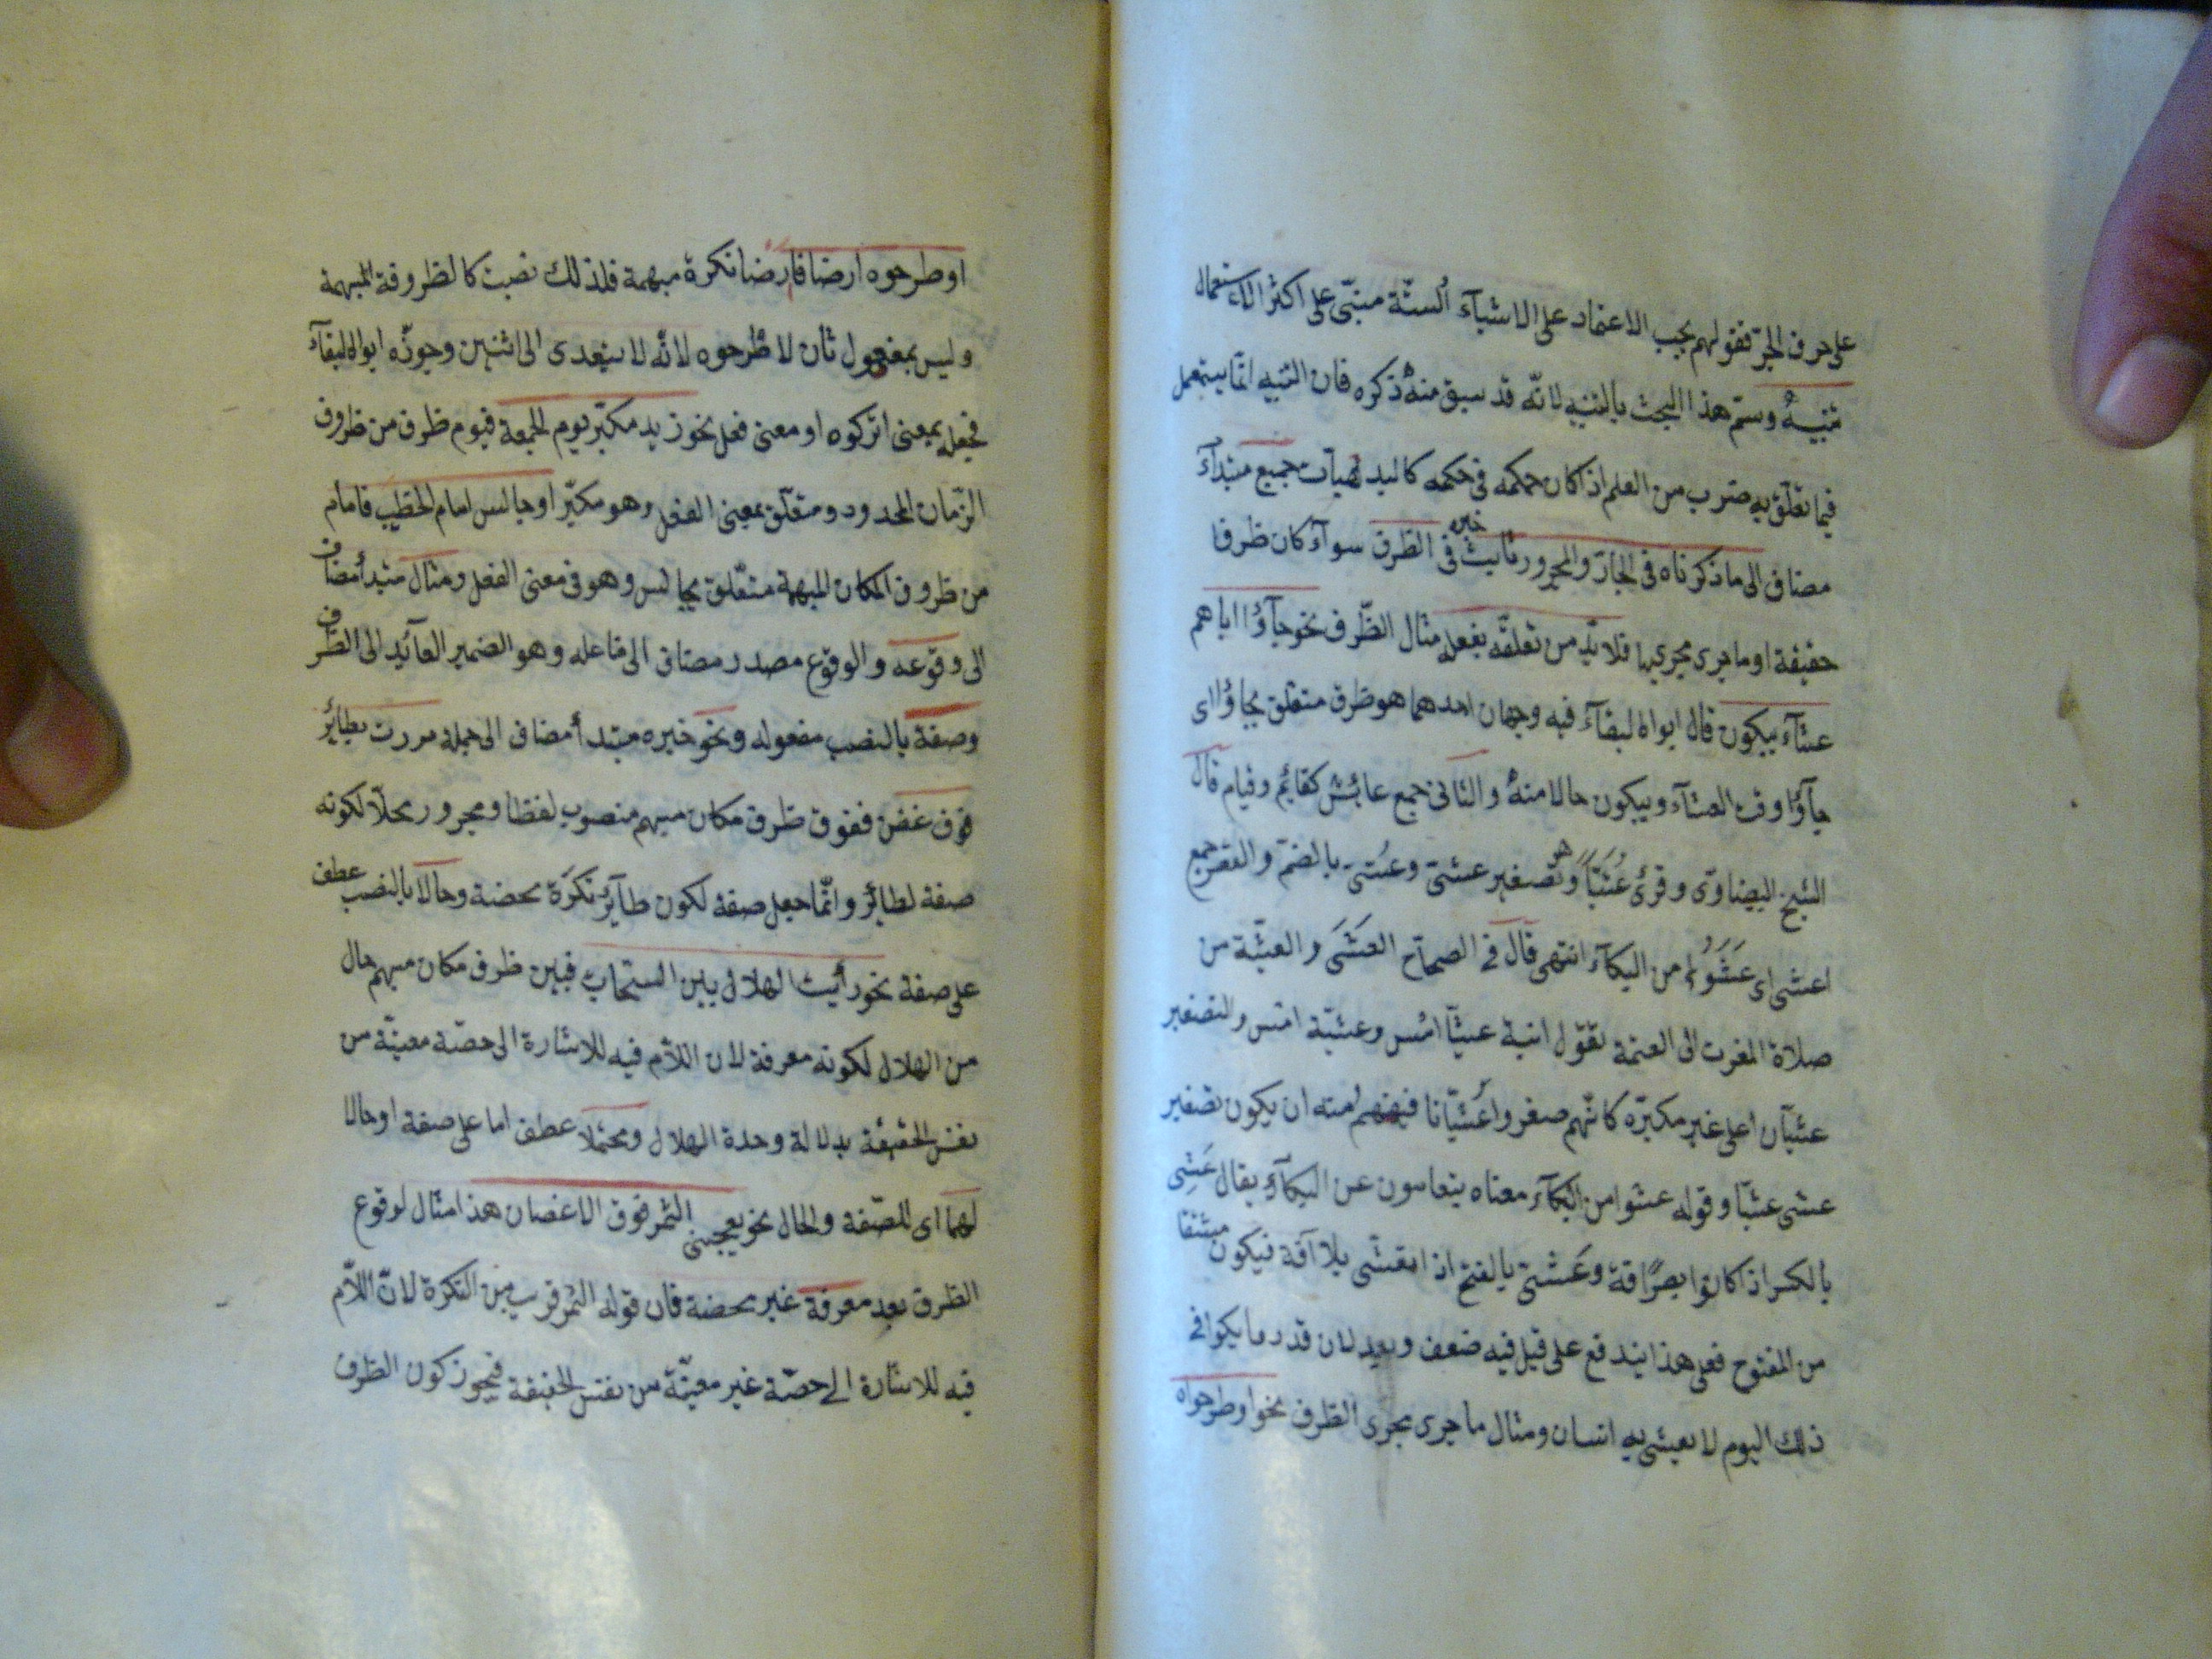 على حرف الجر فقولهم يجب الاعتماد على الاشيآء الستّة مبنىّ على اكثر الاستعمال
تنبيهٌ وسمّ هذا البحث بالتنبيه لانّه قد سبق منهُ ذكره فان التنبيه انّما يستعمل
فيما تعلّق به ضرب من العلم اذ كان حكمه فى حكمه كالبديهيات جميع مبتدآء
مضاف الى ما ذكرناه فى الجارّ والمجرور ثابت خبره فى الظرف سوآء كان ظرفا
حقيقة او ما جرى مجريها فلا بدّ من تعلقه بفعل مثال الظّرف نحو جآؤا اباهم
عشآء يبكون قال ابو البقآء فيه وجهان احدهما هو ظرف متعلق بجاؤا اى
جآؤا وقت العشآء ويبكون حالا منهُ والثانى جمع عائش كقائم وقيام قال
الشيخ البيضاوى وقرئ عُشَيّاً وهو تصغير عشىّ وعُشىّ بالضمّ والقصر جمع
اعشى اى عَشَوْا من البكآء انتهى قال فى الصحاح العَشَى والعشيّة من
صلاة المغرب الى العتمة تقول اتيته عشيّا امس وعشيّة امس والتصغير
عشيّان على غير مكبّره كانّهم صغروا عُشيّانا فيفهم منه ان يكون تصغير
عشى عشيّا وقوله عشوا من البكآء معناه يتعامون عن البكآء يقال عَشِى
بالكسر اذا كانوا بصرًا قة وعَشىَ بالفتح اذا تعشّى بلا آفة فيكون مشتقا
من المفتوح فعلى هذا يندفع على قيل فيه ضعف وبعيد لان قدر ما بكوا فى
ذلك اليوم لا يعشى به انسان ومثال ما جرى مجرى الظرف نحو اوطرحواه
اوطرحوه ارضا فارضا نكرة مبهمة فلذلك نصبت كالظروفة المبهمة
وليس بمفعول ثان لاطرحوه لانّه لا يتعدى الى اثنين وجوزّه ابو البقآء
فجعله بمعنى اتركوه او معنى فعل نحو زيد مكبّر يوم الجمعة فيوم ظرف من ظروف
الزّمان المحدود ومتعلّق بمعنى الفعل وهو مكبّر او جالس امام الخطيب فامام
من ظروف المكان المبهمة متعّلق بجالس وهو فى معنى الفعل ومثال مبتدأ مضاف
الى وقوعه والوقوع مصدر مضاف الى فاعله وهو الضمير العآئد الى الظرف
وصفة بالنصب مفعوله ونحو خبره مبتدأ مضاف الى جملة مررت بطائر
فوق غصن ففوق ظرف مكان مبهم منصوب لفظا ومجرور محلّا لكونه
صفة لطائر وانّما جعل صفة لكون طآئر نكرَة محضة وحالا بالنصب عطف
على صفة نحو رأيت الهلال بين السّحاب فبين ظرف مكان مبهم حال
من الهلال لكونه معرفة لان اللاّم فيه للاشارة الى حصّة معيّنة من
نفس الحقيقة بدلالة وحدة الهلال ومحتملا عطف اما على صفة او حالا
لهما اى للصّفة والحال نحو يعجبنى الثمر فوق الاغصان هذا مثال لوقوع
الظرف بعد معرفة غير محضة فان قوله الثمر قريب من النكرة لانّ اللاّم
فيه للاشارة الى حصّة غير معيّنة من نفس الحقيقة فيجوز كون الظرف